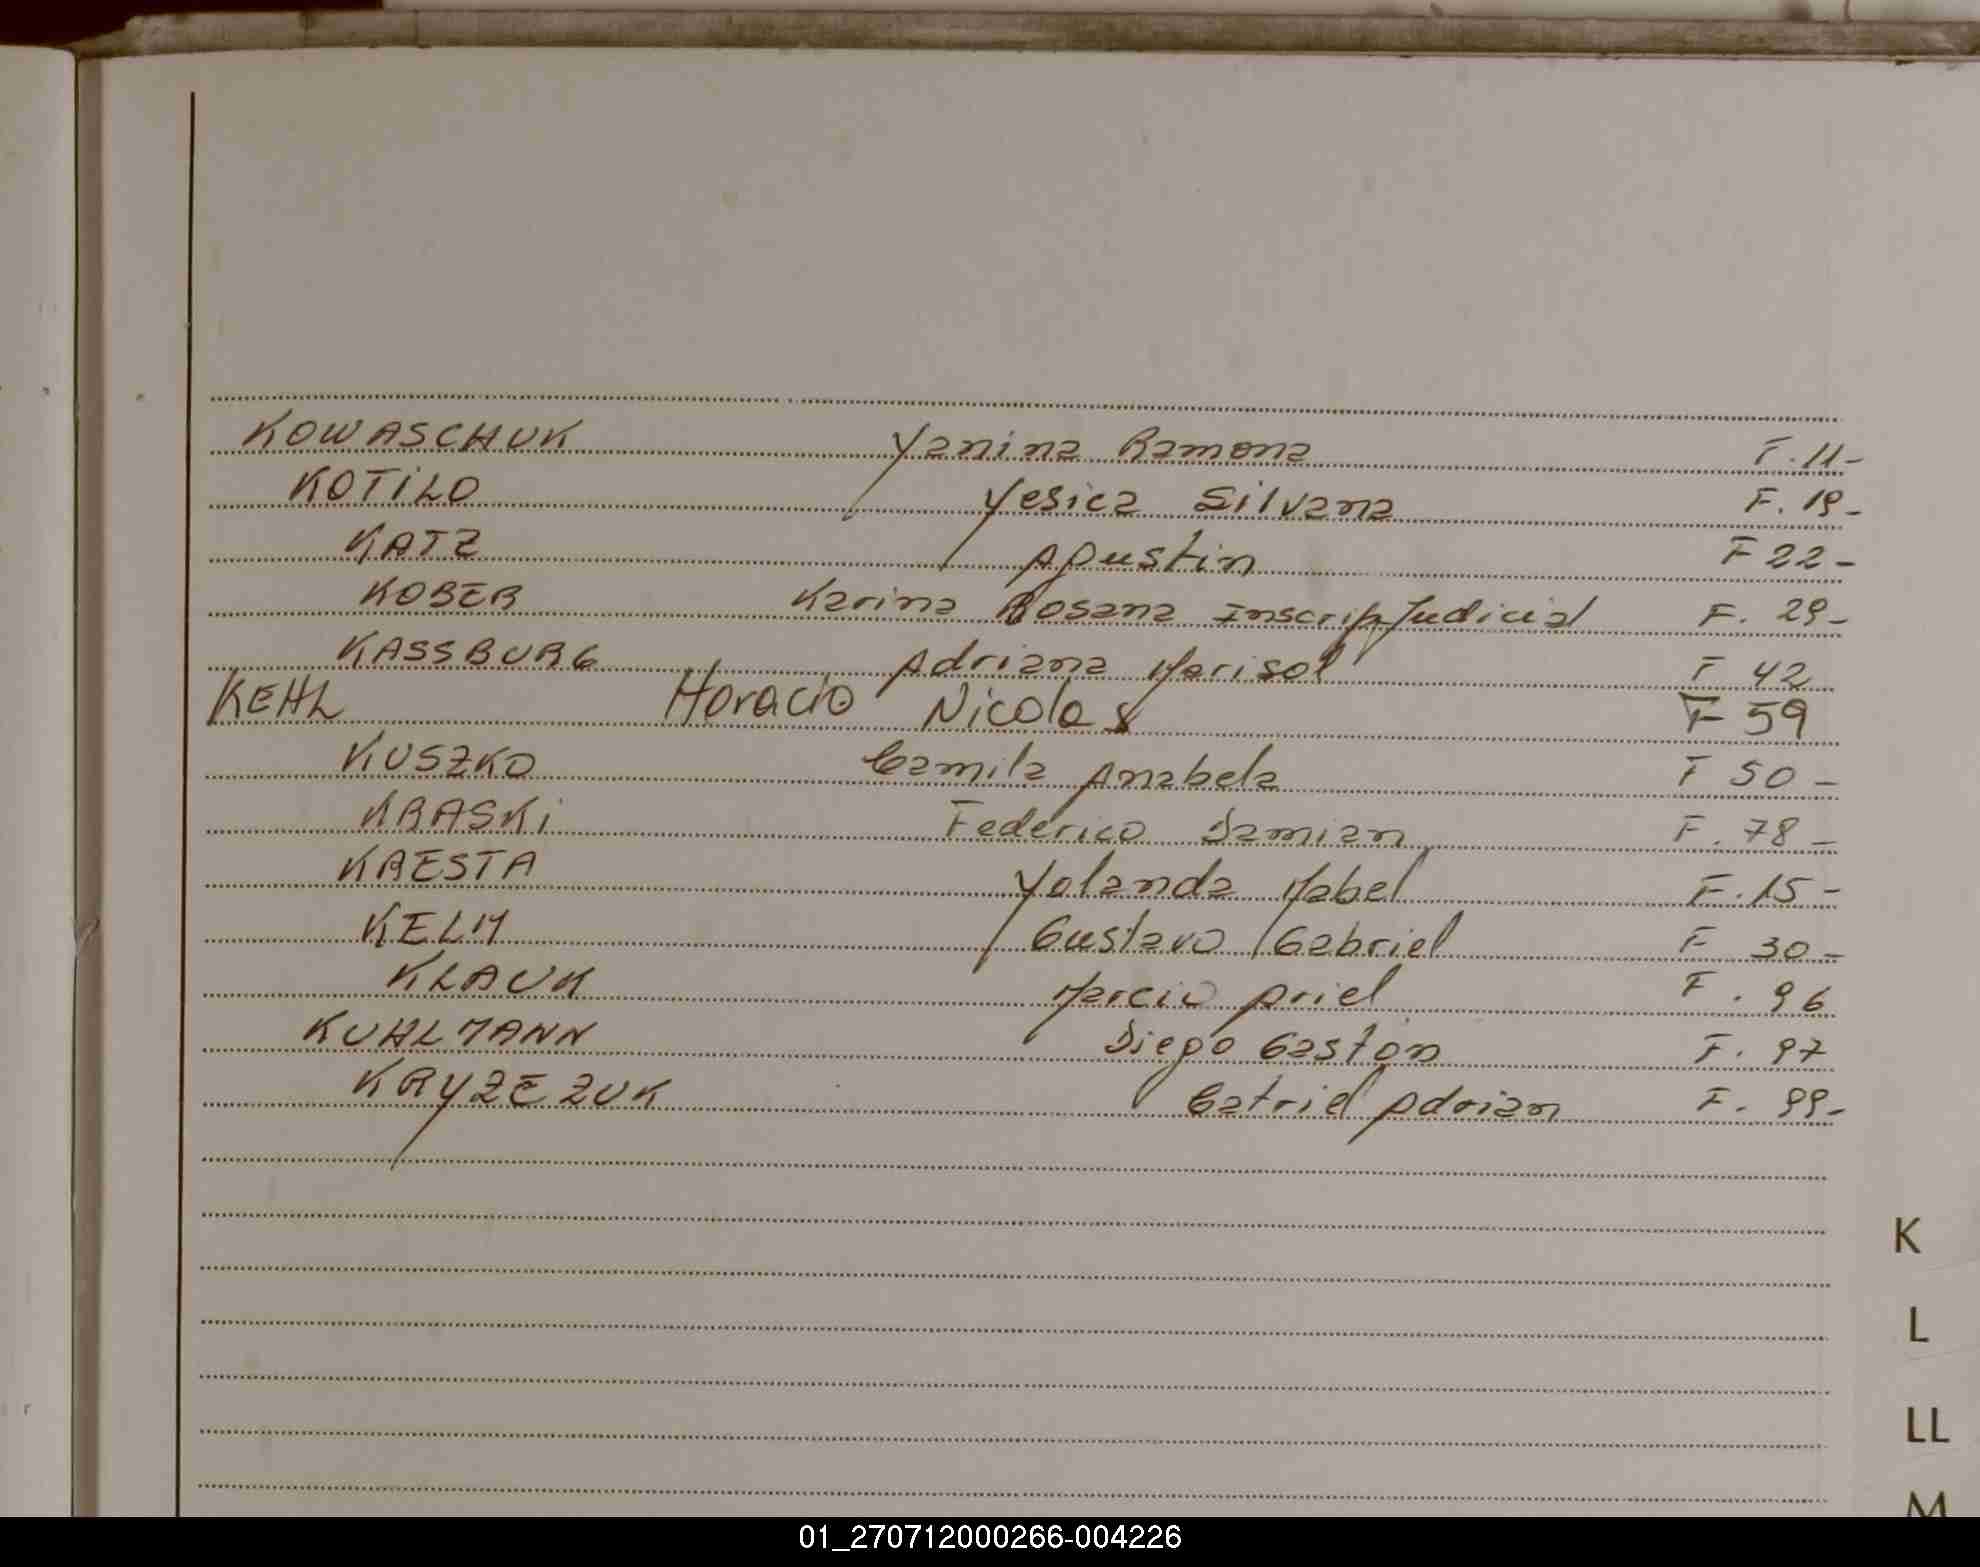 KOWASCHUK Yanina Ramona F.11-
KOTILO Yesica Silvana F.19-
KATZ Agustin F 22-
KOBER Karina Rosana Inscrip Judicial F. 29-
KASSBURG Adriana Marisol F 42
KEHL Horacio Nicolas F 59
KUSZKO Camila Anabela F 50-
KRASKi Federico Damian F. 78-
KRESTA Yolanda Mabel F.15-
KELM Gustavo Gabriel F 30-
KLAUK Marcio Ariel F. 96
KUHLMANN Diego Gastón F. 97
KRYZEZUK Catriel Adrian F. 99-
K
L
LL
M
01_270712000266-004226